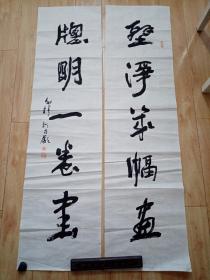 壁淨幾幅畫
牕明一卷書